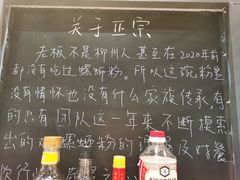 关于正宗
老板不是柳州人,甚至在2020年前
都没有吃过螺蛳粉。所以这碗粉里
没有情怀也没有什么家族传承,有
的只有团队这一年来不断摸索
出的对螺蛳粉的理解及对餐
饮行